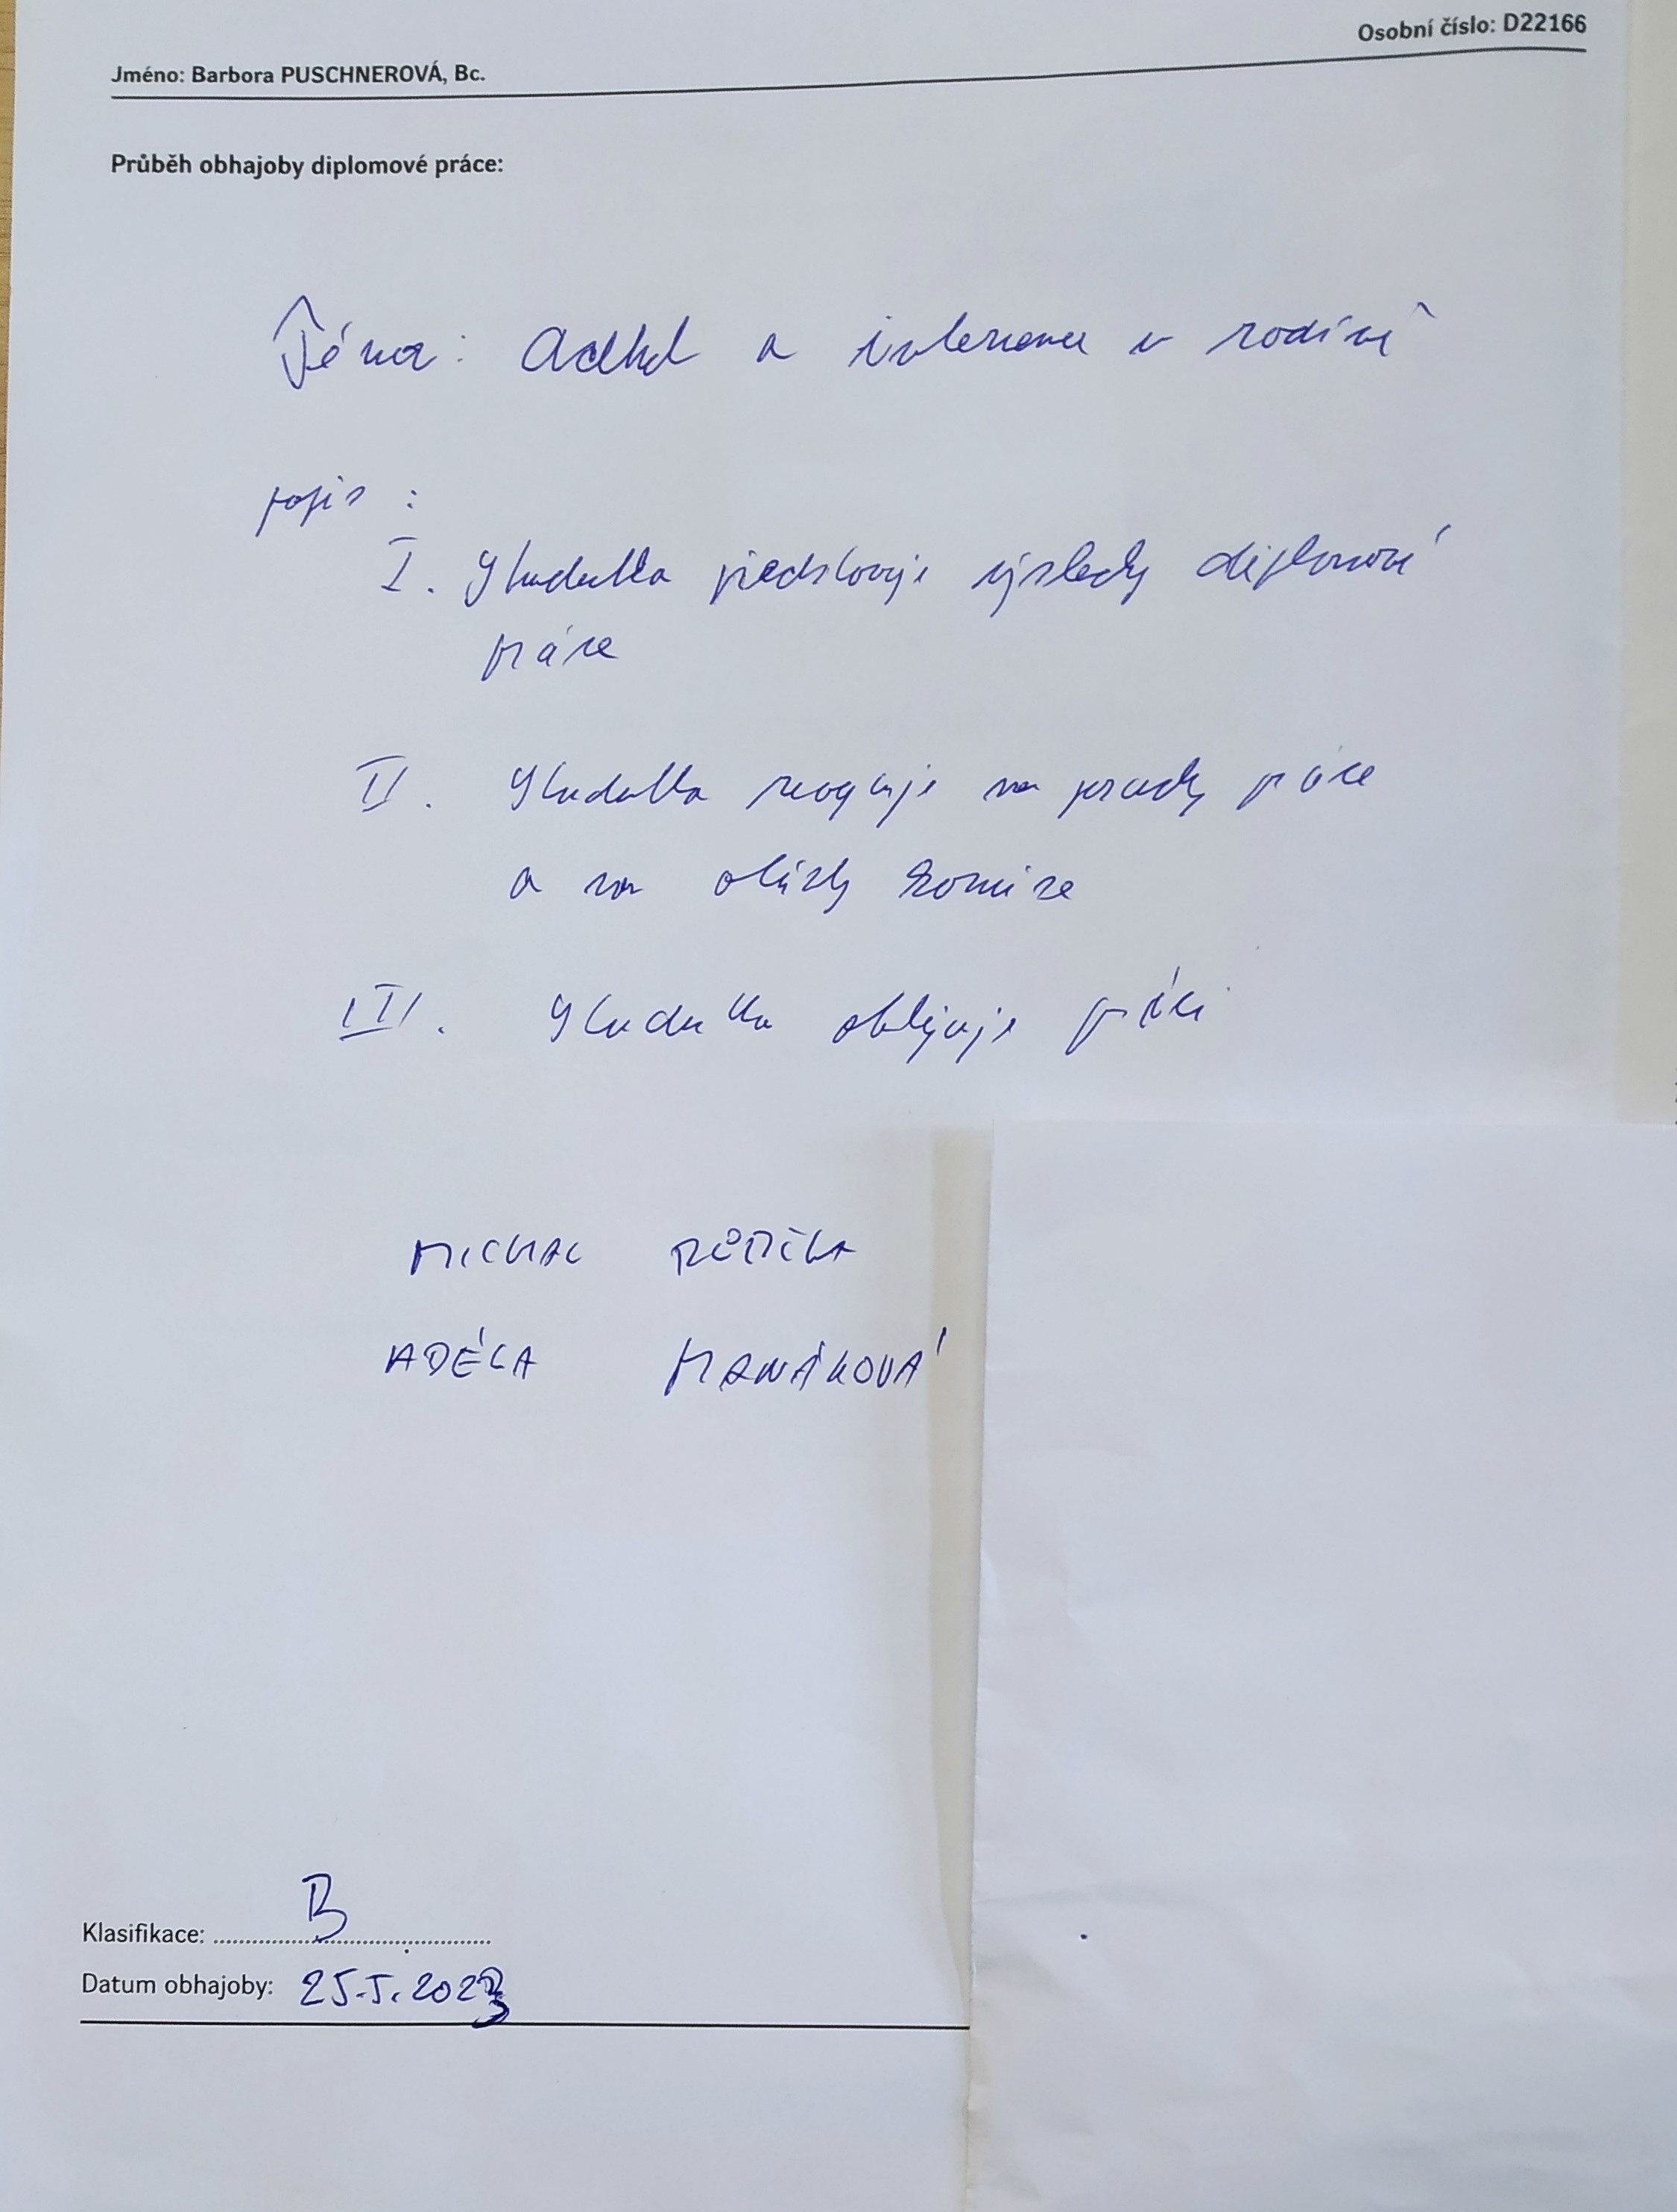 Osobní číslo: D22166
Jméno: Barbora PUSCHNEROVÁ, Bc.
Průběh obhajoby diplomové práce:
Téma: Adhd a intervence v rodině
popis :
I. Studentka představuje výsledky diplomové
práce
II. Studentka reaguje na posudky práce
a na otázky komise
III. Studentka obhajuje práci
MICHAL RŮŽIČKA
ADÉLA HANÁKOVÁ
Klasifikace: B
Datum obhajoby: 25.5.2023